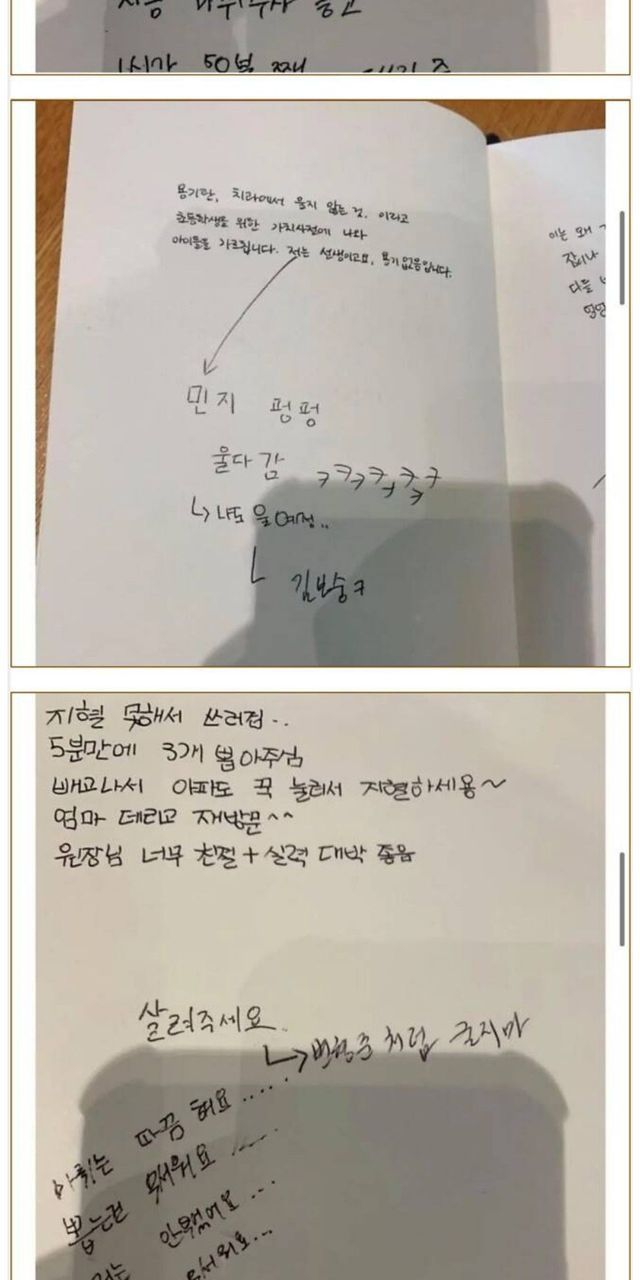 1시간 50분 째
용기란, 치과에서 울지 않는 것. 이라고
초등학생을 위한 가치사전에 나와
아이들을 가르칩니다. 저는 선생이고요, 용기 없음입니다.
민지 펑펑
울다 감 ㅋㅋㅋㅋㅋㅋ
↳ 나도 울 예정..
ㄴ 김보승ㅋ
이는 왜
다음
엉엉
지혈 못해서 쓰러짐..
5분만에 3개 뽑아주심
빼고나서 아파도 꾹 눌러서 지혈하세용~
엄마 데리고 재방문^^
원장님 너무 친절 + 실력 대박 좋음
살려주세요..
↳ 처럼 글지마
마취는 따끔 해요.....
뽑는건 무서워요.....
안무렀어요...
무서워요...